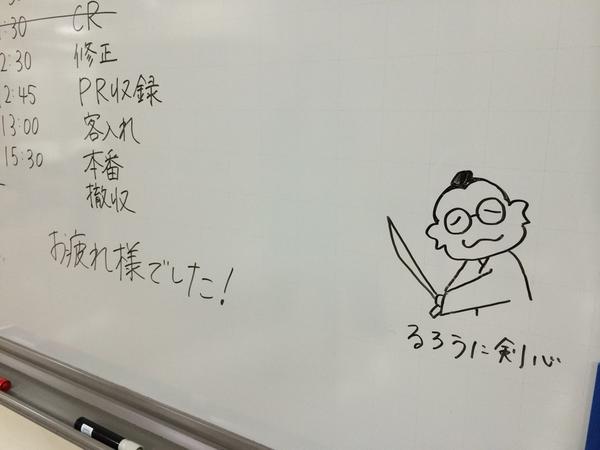 :30 CR
2:30 修正
2:45 PR収録
13:00 客入れ
15:30 本番
撤収
お疲れ様でした!
るろうに剣心